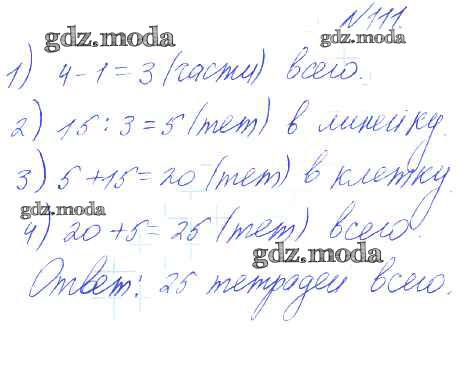 №111.
gdz.moda
gdz.moda
1) 4-1=3 (части) всего.
2) 15:3=5 (тет) в линейку.
3) 5+15=20 (тет) в клетку.
gdz.moda
4) 20+5=25 (тет) всего.
gdz.moda
Ответ: 25 тетрадей всего.